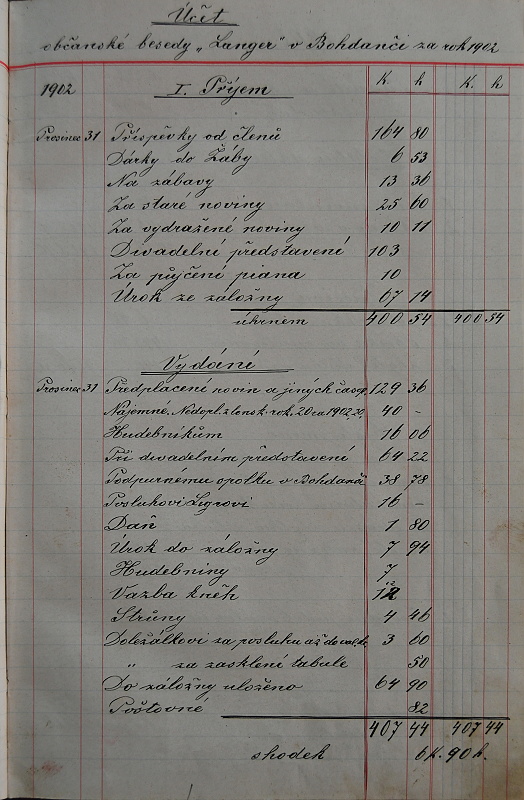 Účet
občanské besedy „Langer" v Bohdanči za rok 1902
K. h K. h
1902 I. Příjem
Prosinec 31 Příspěvky od členů 164 80
Dárky do Žáby 6 53
Na zábavy 13 36
Za staré noviny 25 60
Za vydražené noviny 10 11
Divadelní představení 103
Za půjčení piana 10
Úrok ze záložny 67 14
úhrnem 400 54 400 54
Vydání
Prosinec 31 Předplácení novin a jiných časop. 129 36
Nájemné, Nedopl. z loňsk. rok. 20 za 1902, 20, 40 –
Hudebníkům 16 06
Při divadelním představení 64 22
Podpurnému spolku v Bohdanči 38 78
Posluhovi 16 –
Daň 1 80
Úrok do záložny 7 94
Hudebniny 7
Vazba kněh 12
Struny 4 46
Doležálkovi za posluhu až do 3 60
„ za zasklení tabule 50
Do záložny uloženo 64 90
Poštovné 82
407 44 407 44
shodek 6 K. 90 h.